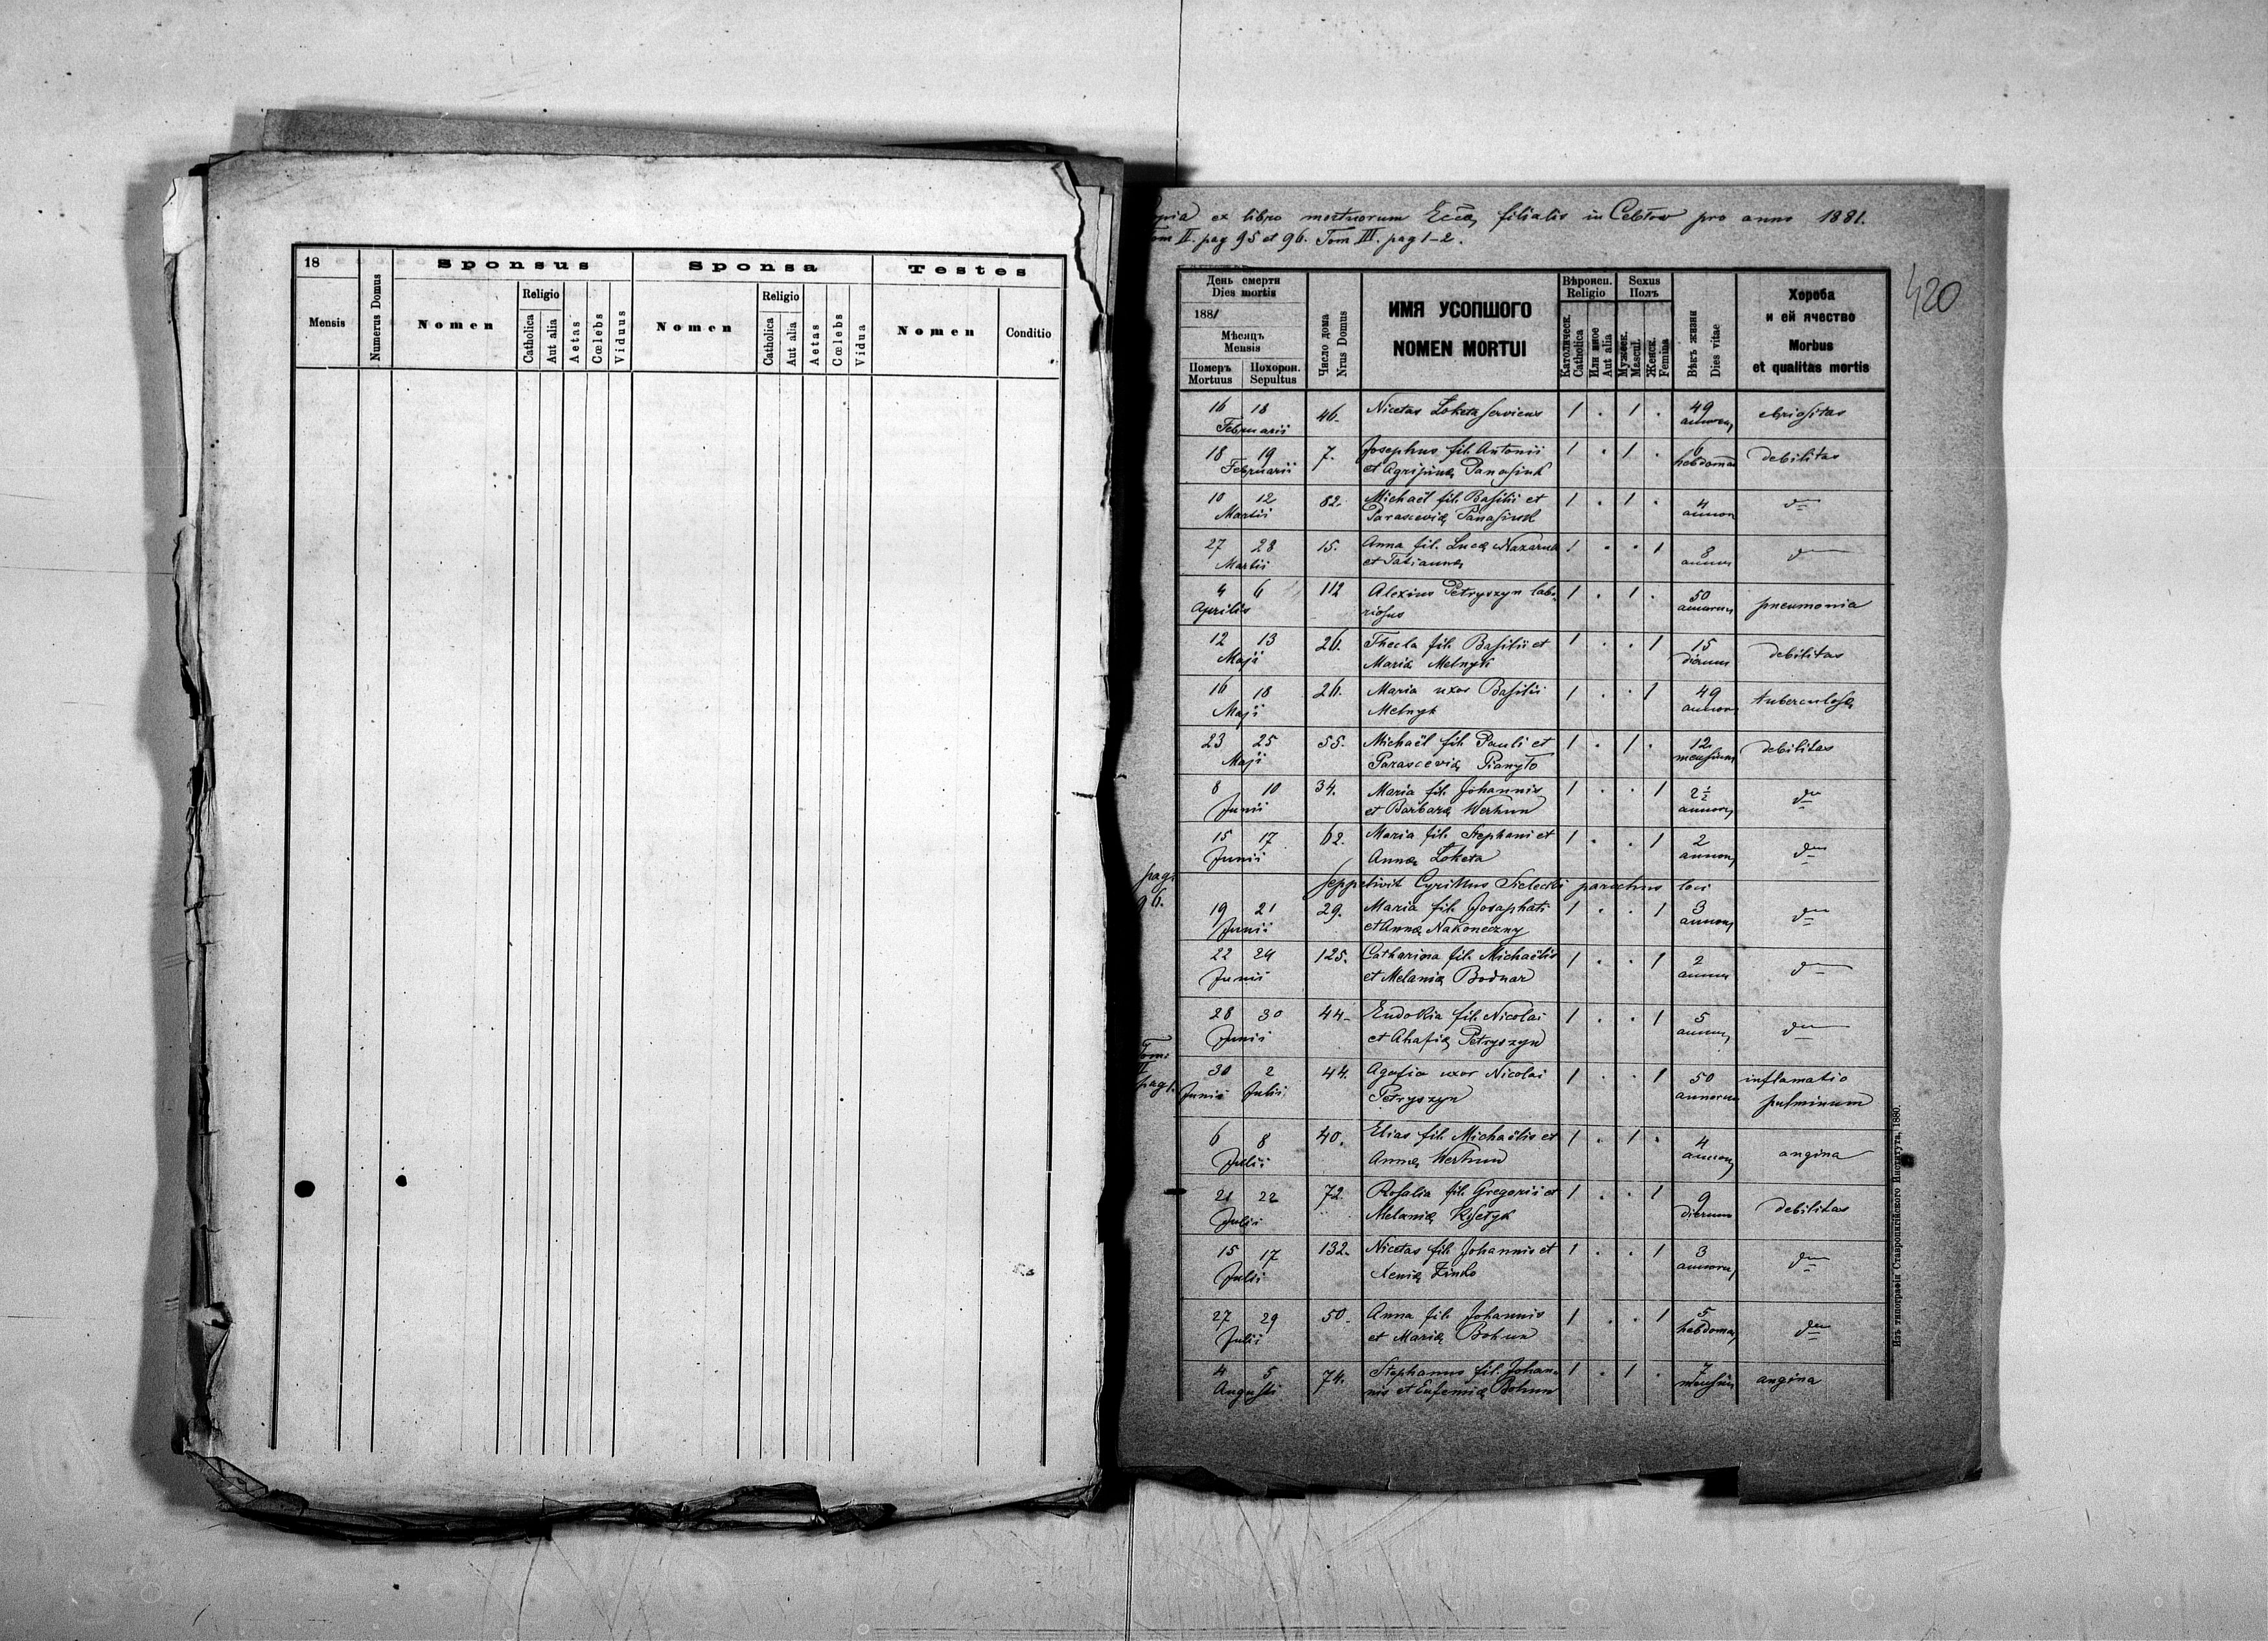 18
Mensis
Numerus Domus
Sponsus
Nomen
Religio
Catholica
Aut alia
Aetas
Cœlebs
Vidus
Sponsa
Nomen
Religio
Catholica
Aut alia
Aetas
Cœlebs
Vidua
Testes
Nomen
Conditio
ex libro mortuorum Eccae filialis in Cebrow pro anno 1881.
Tom II. pag 95 et 96. Tom III. pag 1-2.
420
День смерти
Dies mortis
1881
Мѣсяць
Mensis
Померъ Похорон.
Mortuus Sepultus
Число дома
Nrus Domus
ИМЯ УСОПШОГО
NOMEN MORTUI
Вѣроисп.
Religio
Католическ.
Catholica
Или иное
Aut alia
Sexus
Полъ
Мужеск.
Mascul.
Женск.
Femina
Вѣкъ жизни
Dies vitae
Хороба
и ей ячество
Morbus
et qualitas mortis
16 18 46. Nicetas Łoketa serviens 1 . 1 . 49 ebriositas
Februarii annorum
18 19 7. Josephus fil. Antonii 1 . 1 . 6 debilitas
Februarii et Agripinae Panasiuk hebdoma
10 12 82. Michaël fil. Basilii et 1 . 1 . 4 dto
Martii Parasceviae Panasiuk annor
27 28 15. Anna fil. Lucae Nazaruk 1 . . 1 8 dto
Martii et Tatiannae annor
4 6 112 Alexius Petryszyn labo- 1 . 1 . 50 pneumonia
Aprilis riosus annorum
12 13 26. Thecla fil. Basilii et 1 . . 1 15 debilitas
Maji Mariae Melnyk dierum
16 18 26. Maria uxor Basilii 1 . . 1 49 tuberculosa
Maji Melnyk annor
23 25 55. Michaël fil. Pauli et 1 . 1 . 12 debilitas
Maji Parasceviae Pianyło mensium
8 10 34. Maria fil. Johannis 1 . . 1 2½ dto
Junii et Barbarae Werhun annor
15 17 62. Maria fil. Stephani et 1 . . 1 2 dto
Junii Annae Łoketa annor
pag. 96.
seppelivit Cyrillus Sielecki parochus loci
19 21 29. Maria fil. Josaphati 1 . . 1 3 dto
Junii et Annae Nakoneczny annor
22 24 125. Catharina fil. Michaëlis 1 . . 1 2 dto
Junii et Melaniae Bodnar annor
28 30 44. Eudokia fil. Nicolai 1 . . 1 5 dto
Junii et Ahafiae Petryszyn annor
Tom:
pag 1.
30 2 44. Agafia uxor Nicolai 1 . . 1 50 inflamatio
Junii Julii Petryszyn annorum pulminum
6 8 40. Elias fil. Michaëlis et 1 . 1 . 4 angina
Julii Annae Werhun annor
21 22 72. Rosalia fil. Gregorii et 1 . . 1 9 debilitas
Julii Melaniae dierum
15 17 132. Nicetas fil. Johannis et 1 . . 1 3 dto
Julii Xeniae Zinko annorum
27 29 50. Anna fil. Johannis 1 . . 1 5 dto
Julii et Mariae Bohun hebdoma
4 5 74. Stephanus fil. Johan- 1 . 1 . 7 angina
Augusti nis et Eufemiae Bohun mensium
Изъ типографіи Ставропигійского Института, 1880.